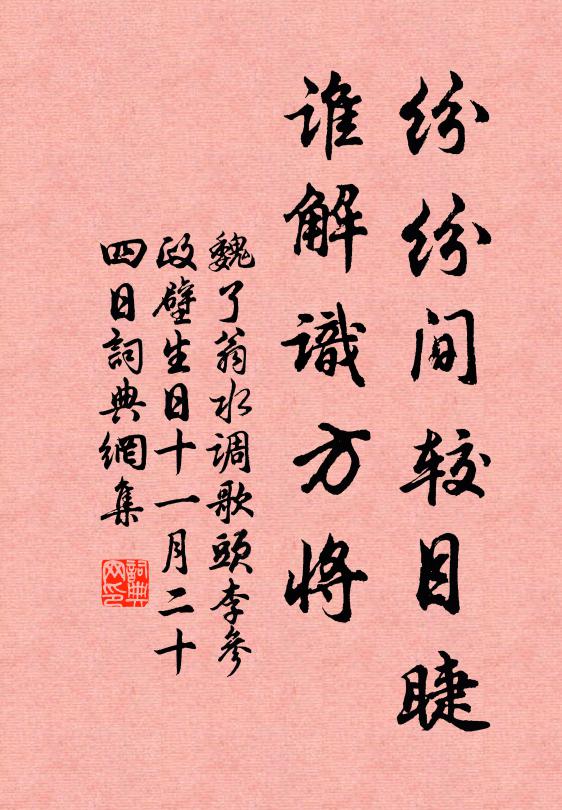 纷纷间较目睫
谁解識方将
魏了翁水调歌頭李參
政壁生日十一月二十
四日詞典網集
詞典網印